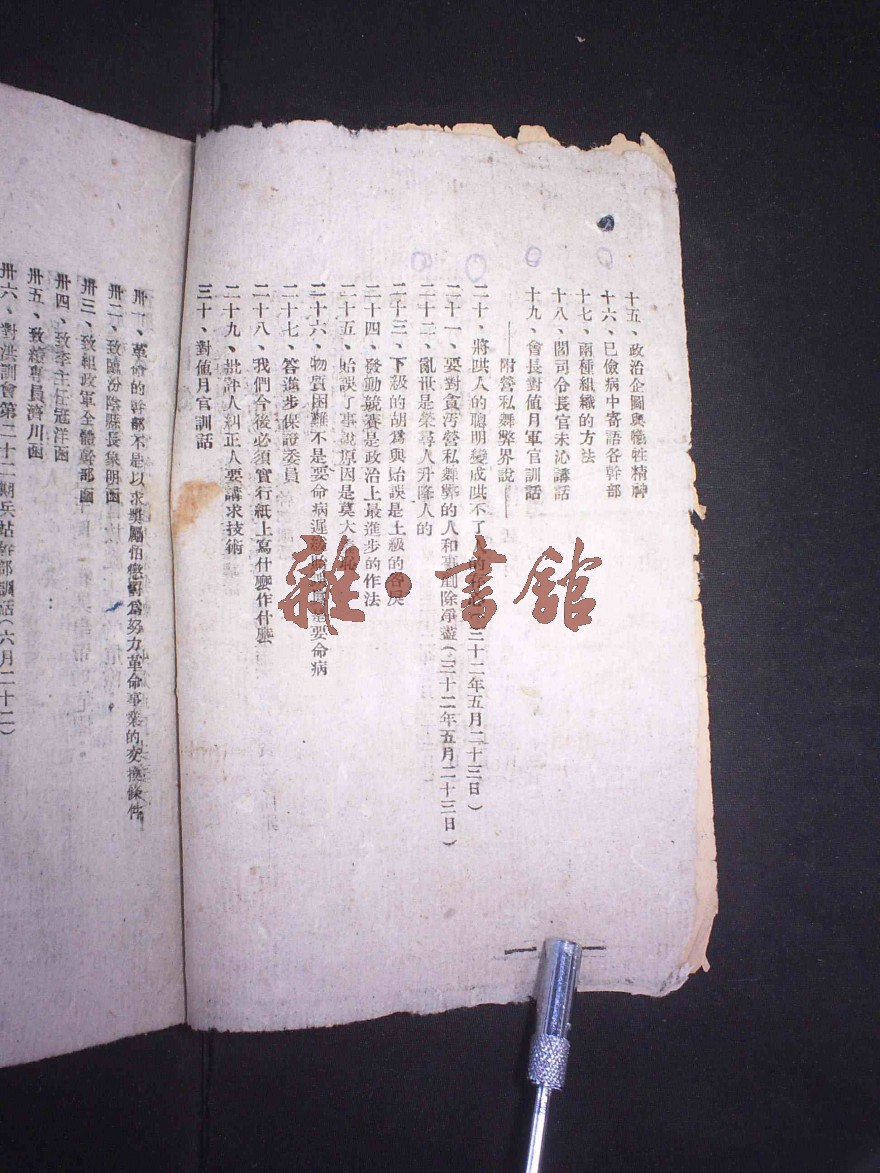 十五、政治企圖與犧牲精神
十六、已儉病中寄語各幹部
十七、兩種組織的方法
十八、閻司令長官未沁講話
十九、會長對值月軍官訓話
——附營私舞弊界說——
二十、將哄人的聰明變成哄不了人的(三十二年五月二十三日)
二十一、要對貪污營私舞弊的人和事剷除淨盡(三十二年五月二十三日)
二十二、亂世是榮辱人升降人的
二十三、下級的胡爲與貽誤是上級的咎戾
二十四、發動競賽是政治上最進步的作法
二十五、貽誤了事說原因是莫大恥
二十六、物質困難不是要命病遲要命病
二十七、答進步保證委員
二十八、我們今後必須實行紙上寫什麼作什麼
二十九、批評人糾正人要講求技術
三十、對值月官訓話
卅一、革命的幹部不是以求獎屬怕懲罰爲努力革命事業的交換條件
卅二、致臨汾陰縣長象明函
卅三、致組政軍全體幹部函
卅四、致李主任冠洋函
卅五、致續專員濟川函
卅六、對洪訓會第二十二期兵站幹部訓話(六月二十二)
雜·書館